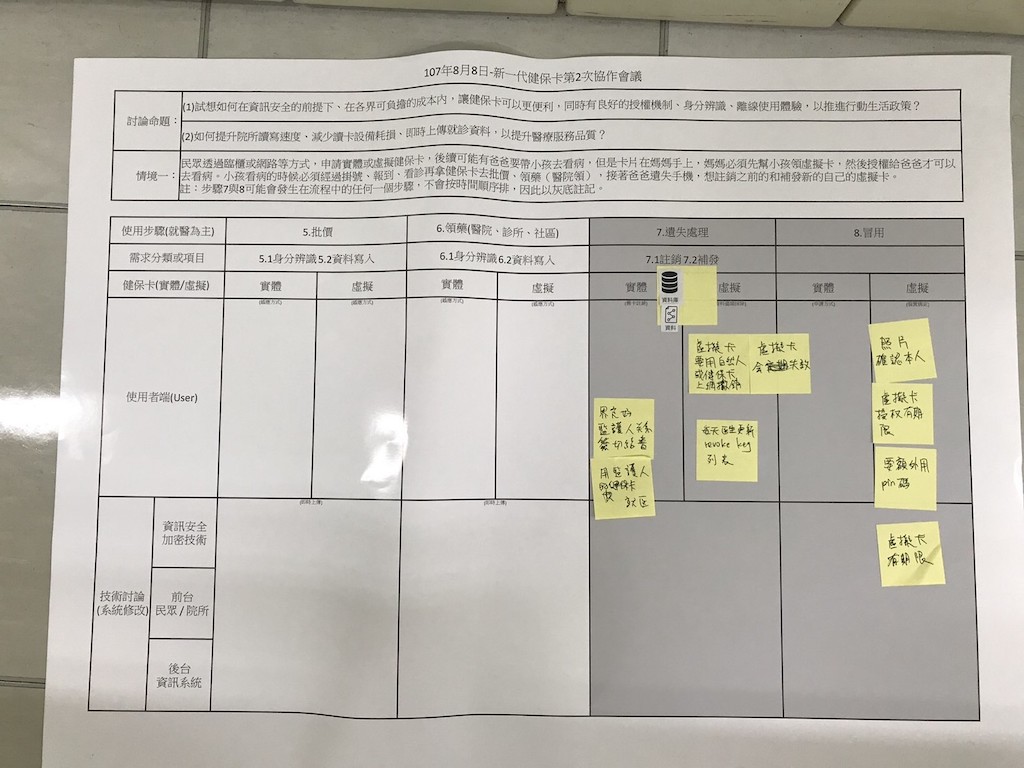 107年8月8日-新一代健保卡第2次協作會議
討論命題：
(1)試想如何在資訊安全的前提下、在各界可負擔的成本內，讓健保卡可以更便利，同時有良好的授權機制、身分辨識、離線使用體驗，以推進行動生活政策？
(2)如何提升院所讀寫速度、減少讀卡設備耗損、即時上傳就診資料，以提升醫療服務品質？
情境一：
民眾透過臨櫃或網路等方式，申請實體或虛擬健保卡，後續可能有爸爸要帶小孩去看病，但是卡片在媽媽手上，媽媽必須先幫小孩領虛擬卡，然後授權給爸爸才可以
去看病。小孩看病的時候必須經過掛號、報到、看診再拿健保卡去批價、領藥（醫院領），接著爸爸遺失手機，想註銷之前的和補發新的自己的虛擬卡。
註：步驟7與8可能會發生在流程中的任何一個步驟，不會按時間順序排，因此以灰底註記。
使用步驟(就醫為主)
5.批價
6.領藥(醫院、診所、社區)
7.遺失處理
8.冒用
需求分類或項目
5.1身分辨識5.2資料寫入
6.1身分辨識6.2資料寫入
7.1註銷7.2補發
健保卡(實體/虛擬)
實體
虛擬
實體
虛擬
實體
虛擬
實體
虛擬
資料庫
資料
使用者端(User)
虛擬卡
要用自然人
或健保卡
上網撤銷
虛擬卡
照片
確認本人
界定好
監護人关系
簽切結書
每天
更新
revoke key
列表
虛擬卡
授權有期
限
用監護人
的健保卡
就医
要額外用
pin碼
虛擬卡
有期限
(即時上傳)
(即時上傳)
技術討論
(系統修改)
資訊安全
加密技術
前台
民眾 / 院所
後台
資訊系統